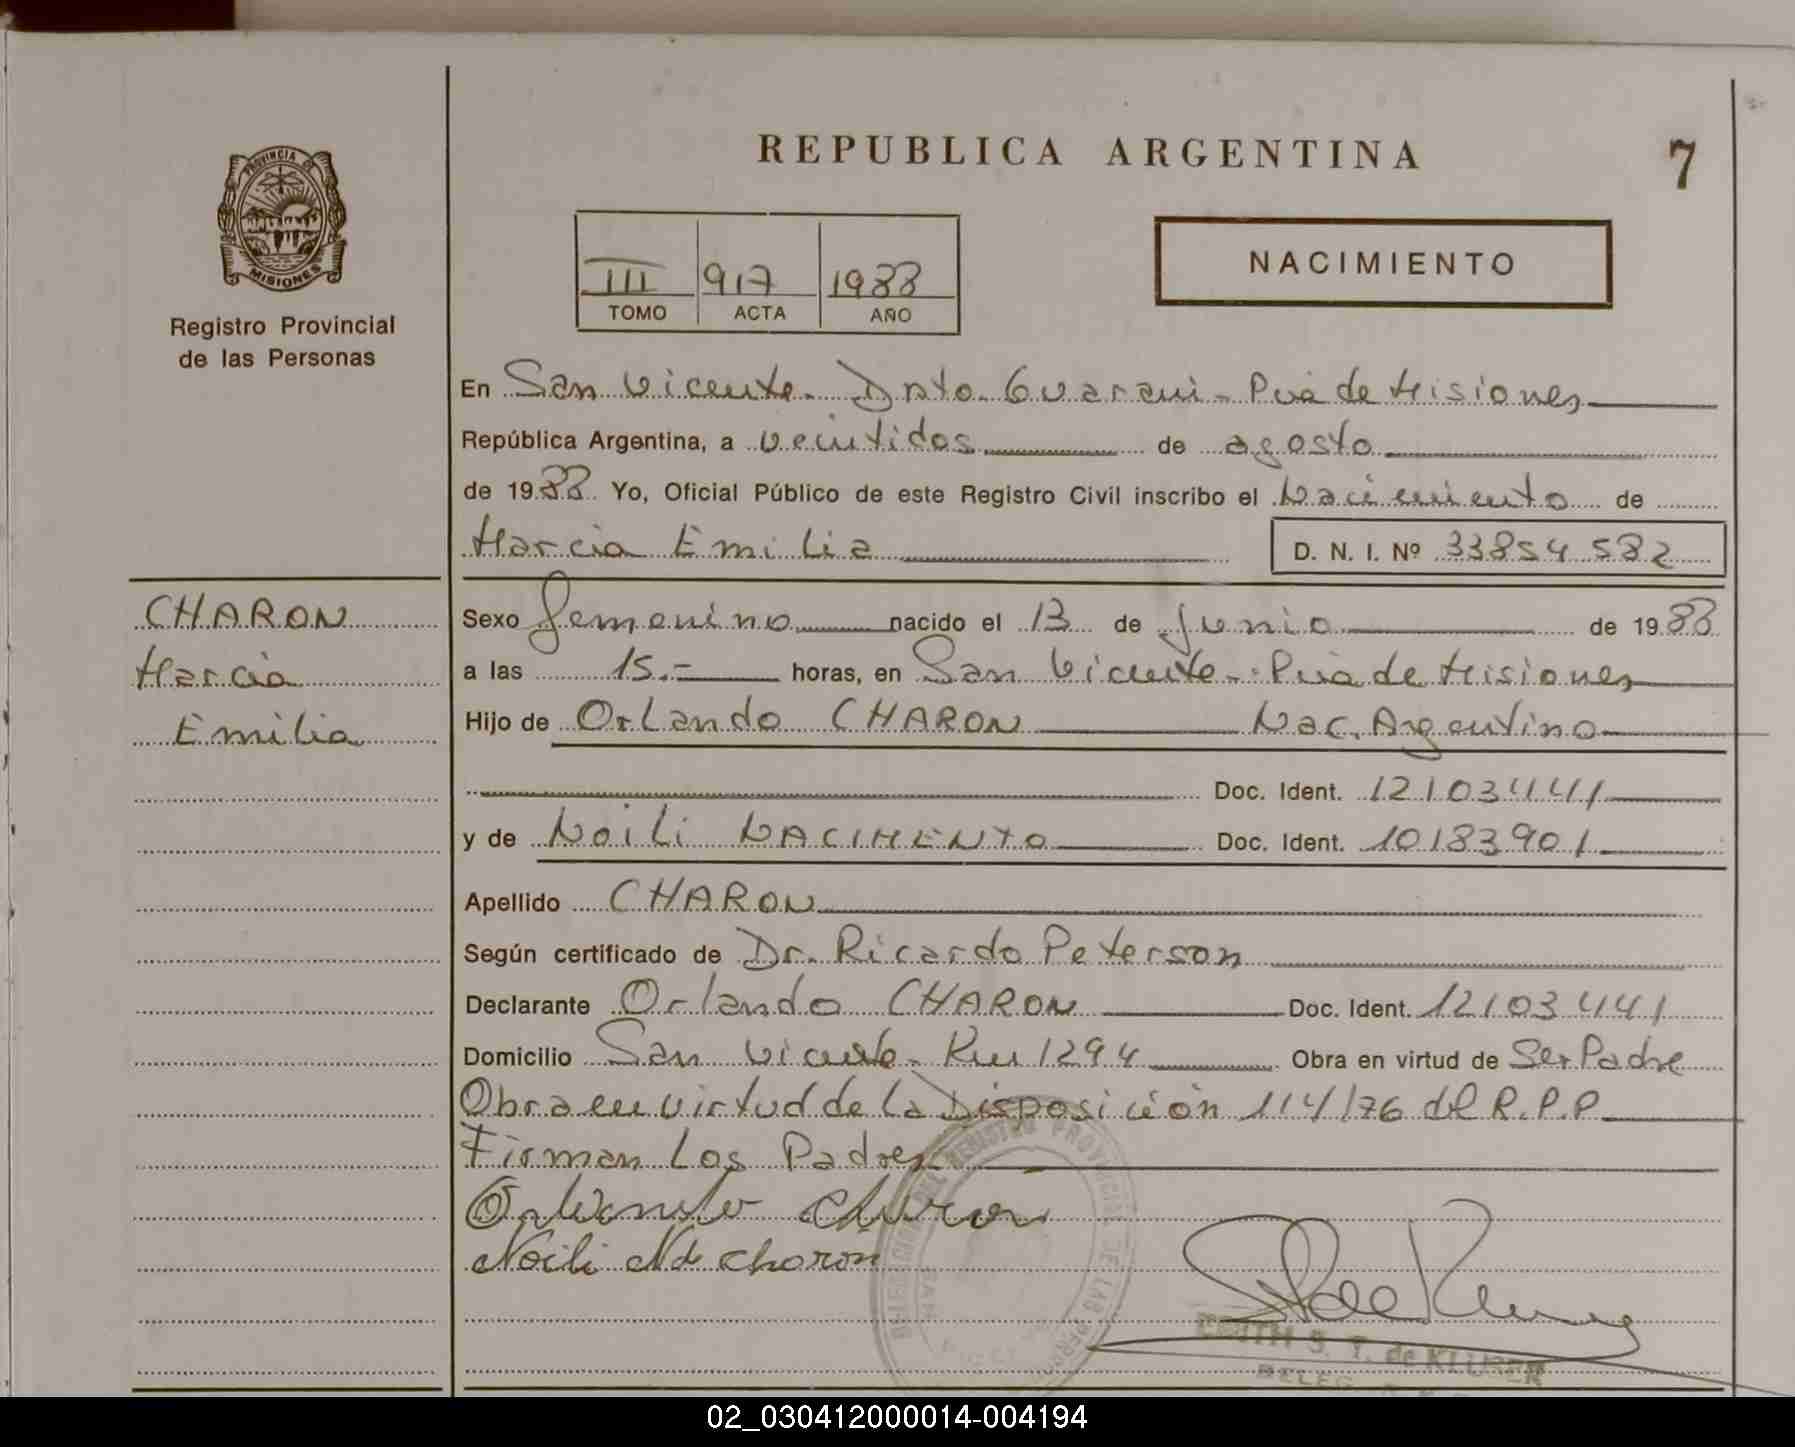 REPUBLICA ARGENTINA
7
PROVINCIA DE MISIONES
Registro Provincial
de las Personas
III 917 1988
TOMO ACTA AÑO
NACIMIENTO
En San Vicente. Dpto. Guarani - Pcia de Misiones
República Argentina, a veintidos de agosto
de 1988 Yo, Oficial Público de este Registro Civil inscribo el Nacimiento de
Marcia Emilia D. N. I. Nº 33854582
CHARON
Marcia
Emilia
Sexo femenino nacido el 13 de junio de 1988
a las 15.- horas, en San Vicente - Pcia de Misiones
Hijo de Orlando CHARON Nac. Argentino
Doc. Ident. 12103441
y de Noili NACIMENTO Doc. Ident. 10183901
Apellido CHARON
Según certificado de Dr. Ricardo Peterson
Declarante Orlando CHARON Doc. Ident. 12103441
Domicilio San Vicente - Km 1294 Obra en virtud de Ser Padre
Obra en virtud de la Disposición 114/76 del R.P.P
Firman Los Padres
Orlando Charon
Noili N de Charon
EDITH S. T. de KLUSER
DELEG.
02_030412000014-004194